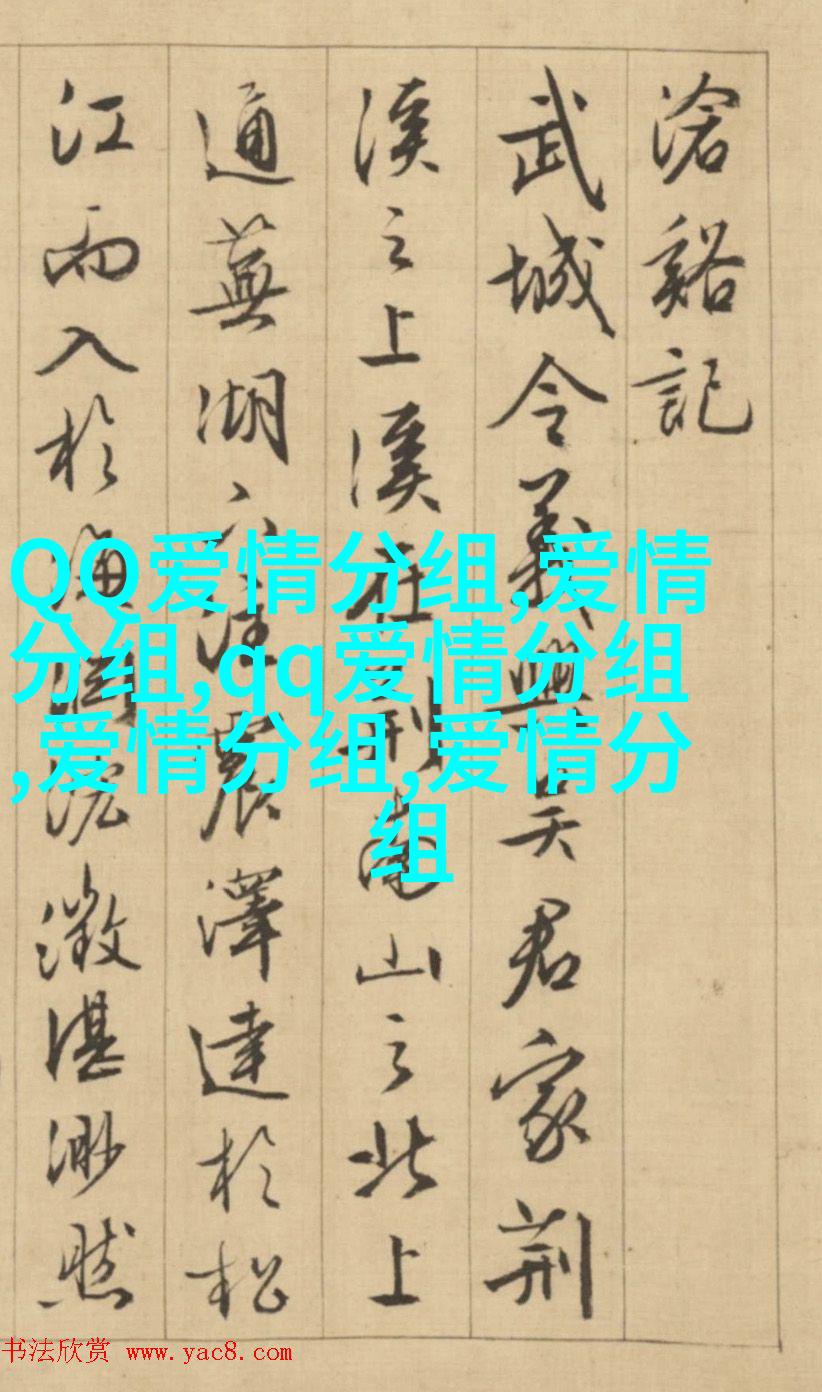 滄谿記
武城令義興吳君家荊
溪之上溪在荊南山之北上
通蕪湖下注震澤達於松
江而入於海澂湛渺然
QQ爱情分组,爱情
分组,qq爱情分组
,爱情分组,爱情分
组
书法欣赏 www.yac8.com